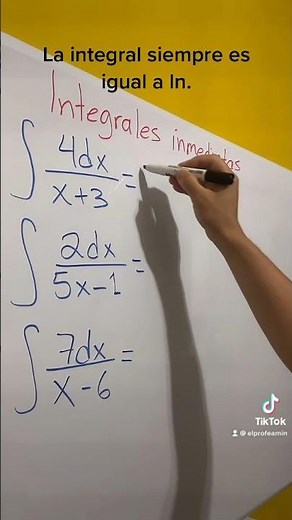 La integral siempre es
igual a ln.
Integrales inmediatas
∫ 4dx
x+3 =
∫ 2dx
5x-1 =
∫ 7dx
x-6 =
TikTok
@elprofeamin